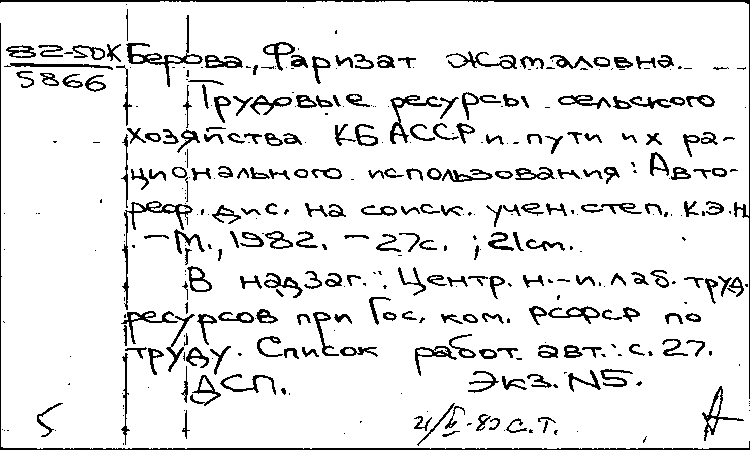 82-50К Берова, Фаризат Жамаловна.
5866
Трудовые ресурсы сельского
хозяйства КБАССР и пути их ра-
ционального использования: Авто-
реф. дис. на соиск. учен. степ. к.э.н
. – М., 1982. – 27с. ; 21см.
В надзаг.: Центр. н.-и. лаб. труд.
ресурсов при Гос. ком. РСФСР по
труду. Список работ авт.: с. 27.
ДСП. Экз. N5.
5 С.Т.